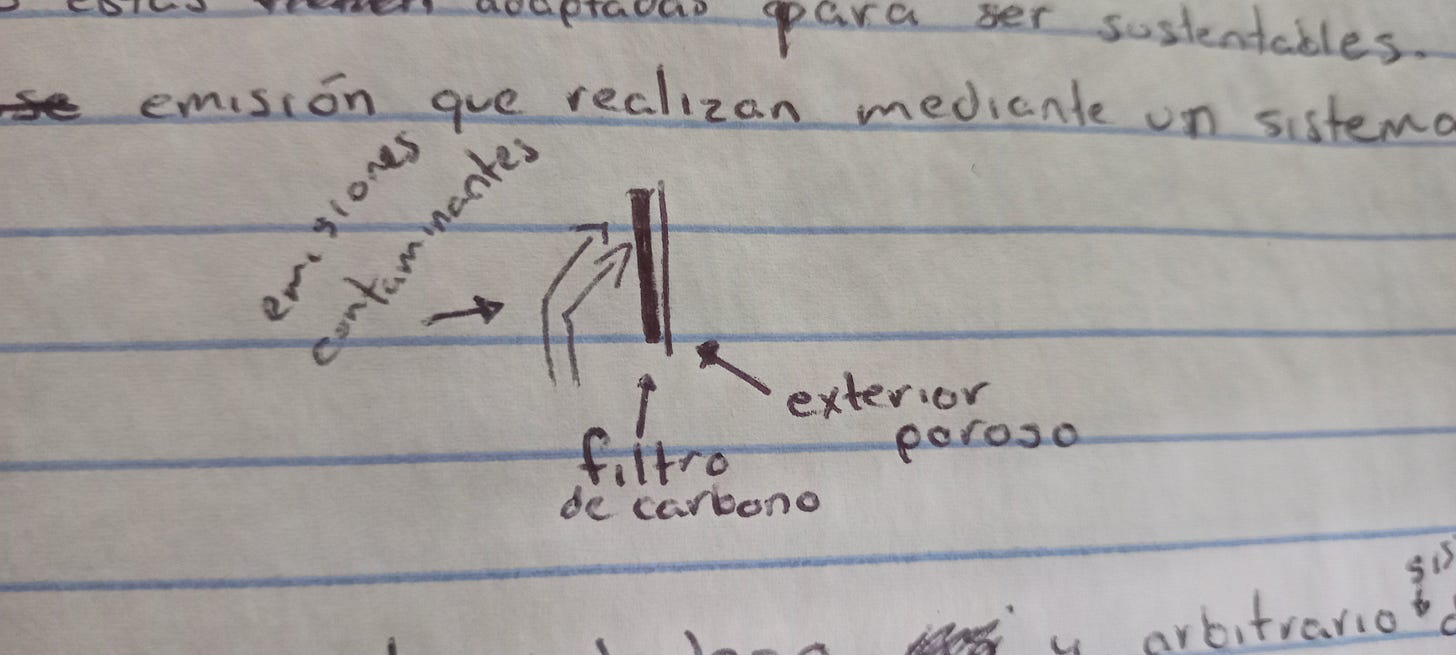 estas adaptadas para ser sustentables.
se emisión que realizan mediante un sistema
emisiones
contaminantes
exterior
poroso
filtro
de carbono
y arbitrario